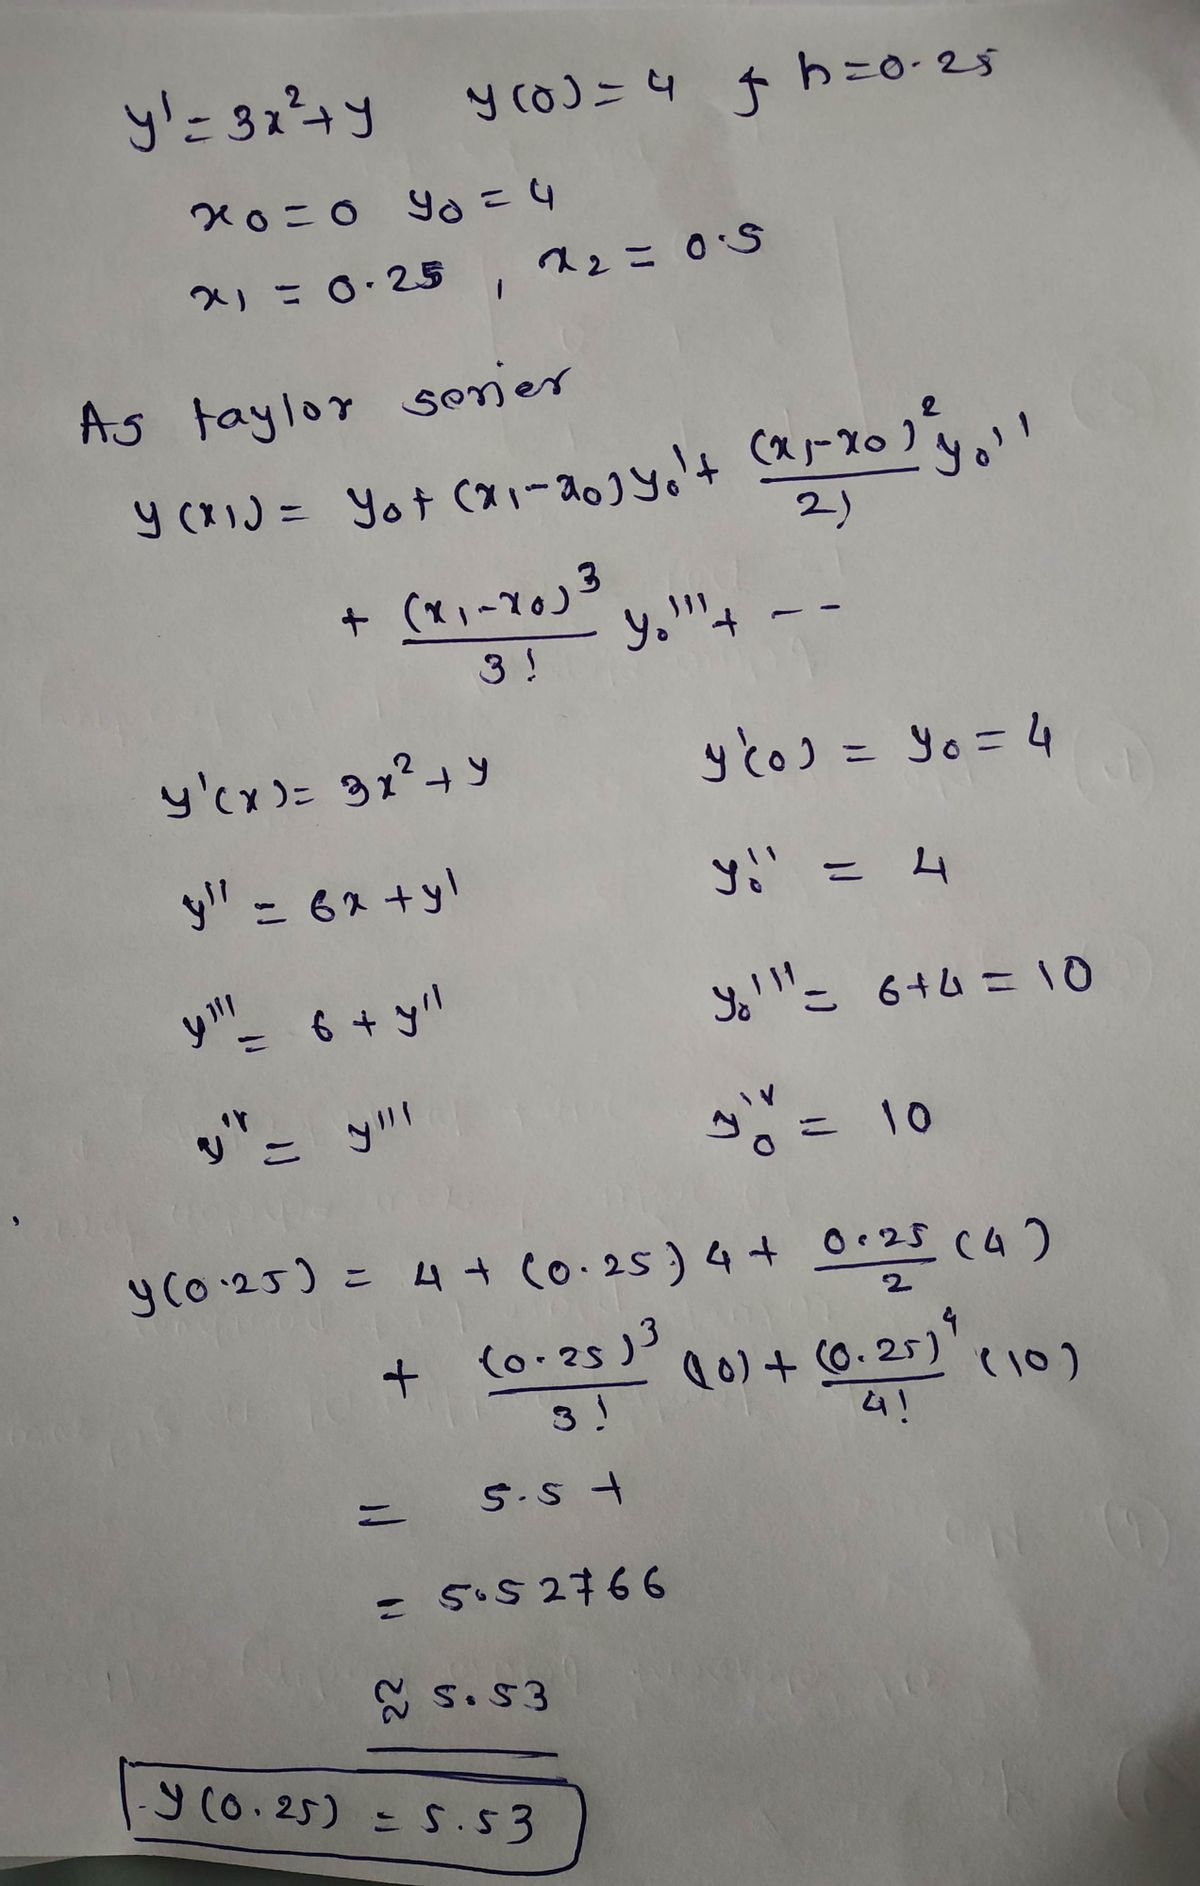 y' = 3x²+y y(0) = 4 & h=0.25
x0=0 y0=4
x1 = 0.25 , x2 = 0.5
As taylor serier
y(x1) = y0+(x1-x0)y0'+ (x1-x0)²/2! y0''
+ (x1-x0)³/3! y0'''+ --
y'(x)= 3x²+y y'(0) = y0 = 4
y'' = 6x+y' y0'' = 4
y''' = 6+y'' y0''' = 6+4 = 10
y'v = y''' y0'v = 10
y(0.25) = 4 + (0.25) 4 + 0.25/2 (4)
+ (0.25)³/3! (10) + (0.25)⁴/4! (10)
= 5.5 +
= 5.52766
≈ 5.53
y(0.25) = 5.53